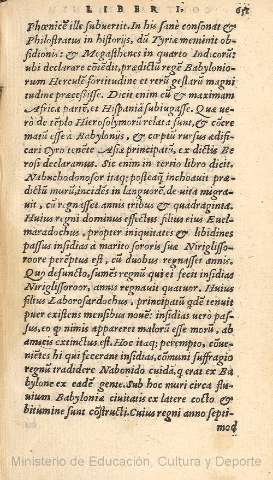 LIBER I.
Phœnicẽ ille subuertit. In his sanè consonat &
Philostratus in historijs, dũ Tyriæ meminit ob-
sidionis: & Megasthenes in quarto Indicorũ:
ubi declarare cõtẽdit, prædictũ regẽ Babylonio-
rum Herculẽ fortitudine et rerũ gestarũ magni
tudine præcessisse. Dicit enim eũ & maximam
Africæ partẽ, et Hispaniã subiugasse. Quæ ue-
rò de tẽplo Hierosolymorũ relata sunt, & cõcre
matũ esse à Babylonijs, & cœptũ rursus ædifi-
cari Cyro tenẽte Asiæ principatũ, ex dictis Be
rosi declaramus. Sic enim in tertio libro dicit.
Nabuchodonosor itaq; posteaq̃ inchoauit præ-
dictũ murũ, incidẽs in languorẽ, de uita migra-
uit, cũ regnasset annis tribus & quadraginta.
Huius regni dominus effectus filius eius Euel-
maradochus, propter iniquitates & libidines
passus insidias à marito sororis suæ Niriglisso-
roore perẽptus est, cũ duobus regnasset annis.
Quo defuncto, sumẽs regnũ qui ei fecit insidias
Niriglissoroor, annis regnauit quatuor. Huius
filius Laborosardochus, principatũ qdẽ tenuit
puer existens mensibus nouẽ: insidias uero pas-
sus, eo q̃ nimis appareret malorũ esse morũ, ab
amicis extinctus est. Hoc itaq; perempto, cõue-
niẽtes hi qui fecerant insidias, cõmuni suffragio
regnũ tradidere Nabonido cuidã, q erat ex Ba
bylone ex eadẽ gente. Sub hoc muri circa flu-
uium Babyloniæ ciuitatis ex latere cocto &
bitumine sunt cõstructi. Cuius regni anno septi-
mo
Ministerio de Educación, Cultura y Deporte